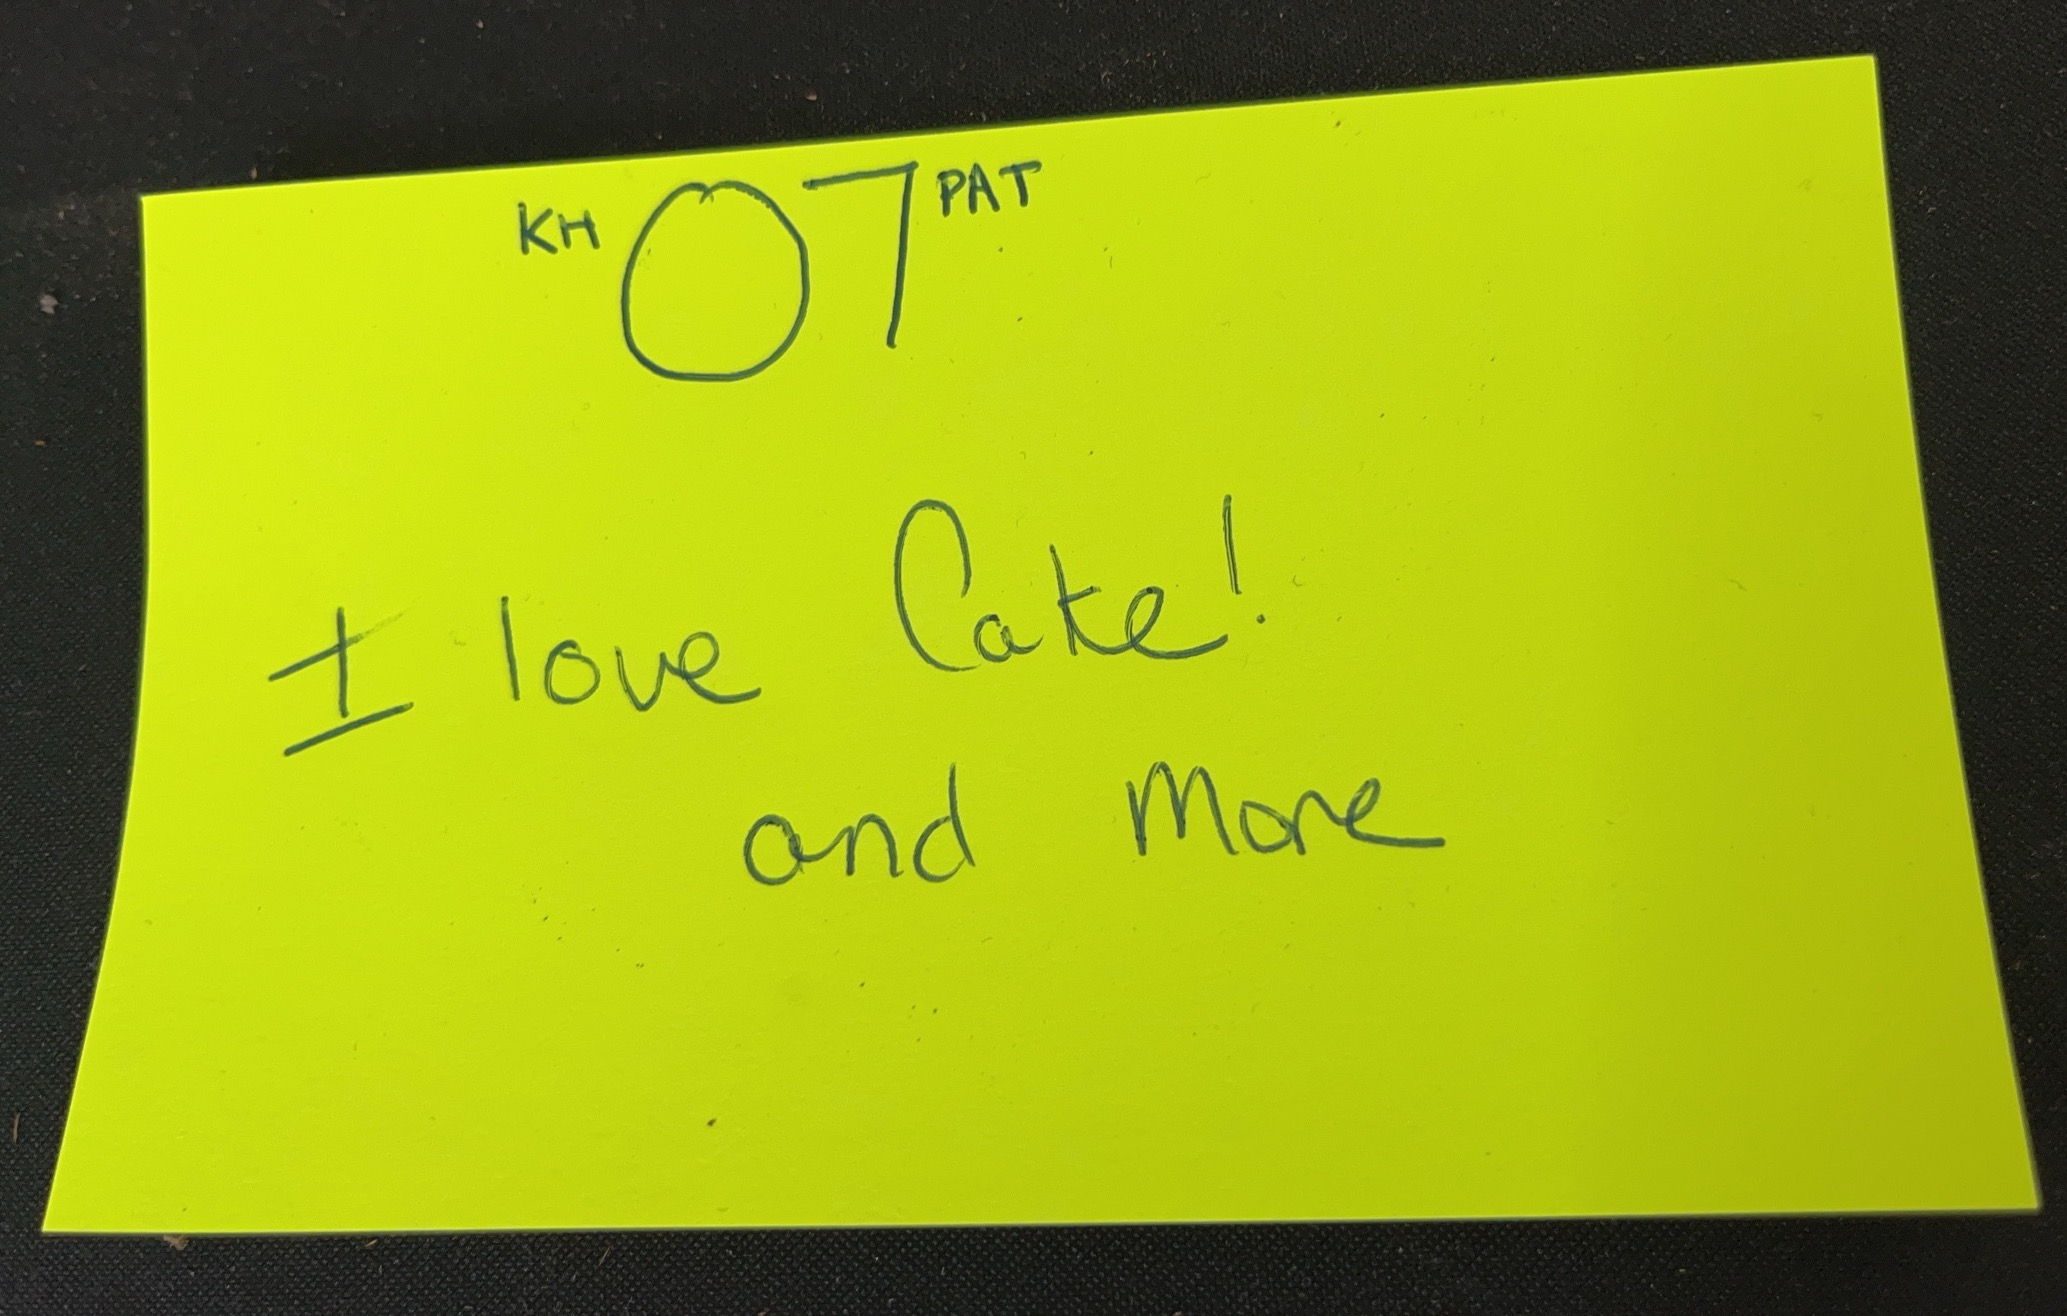 KH 07 PAT
I love Cake!
and More